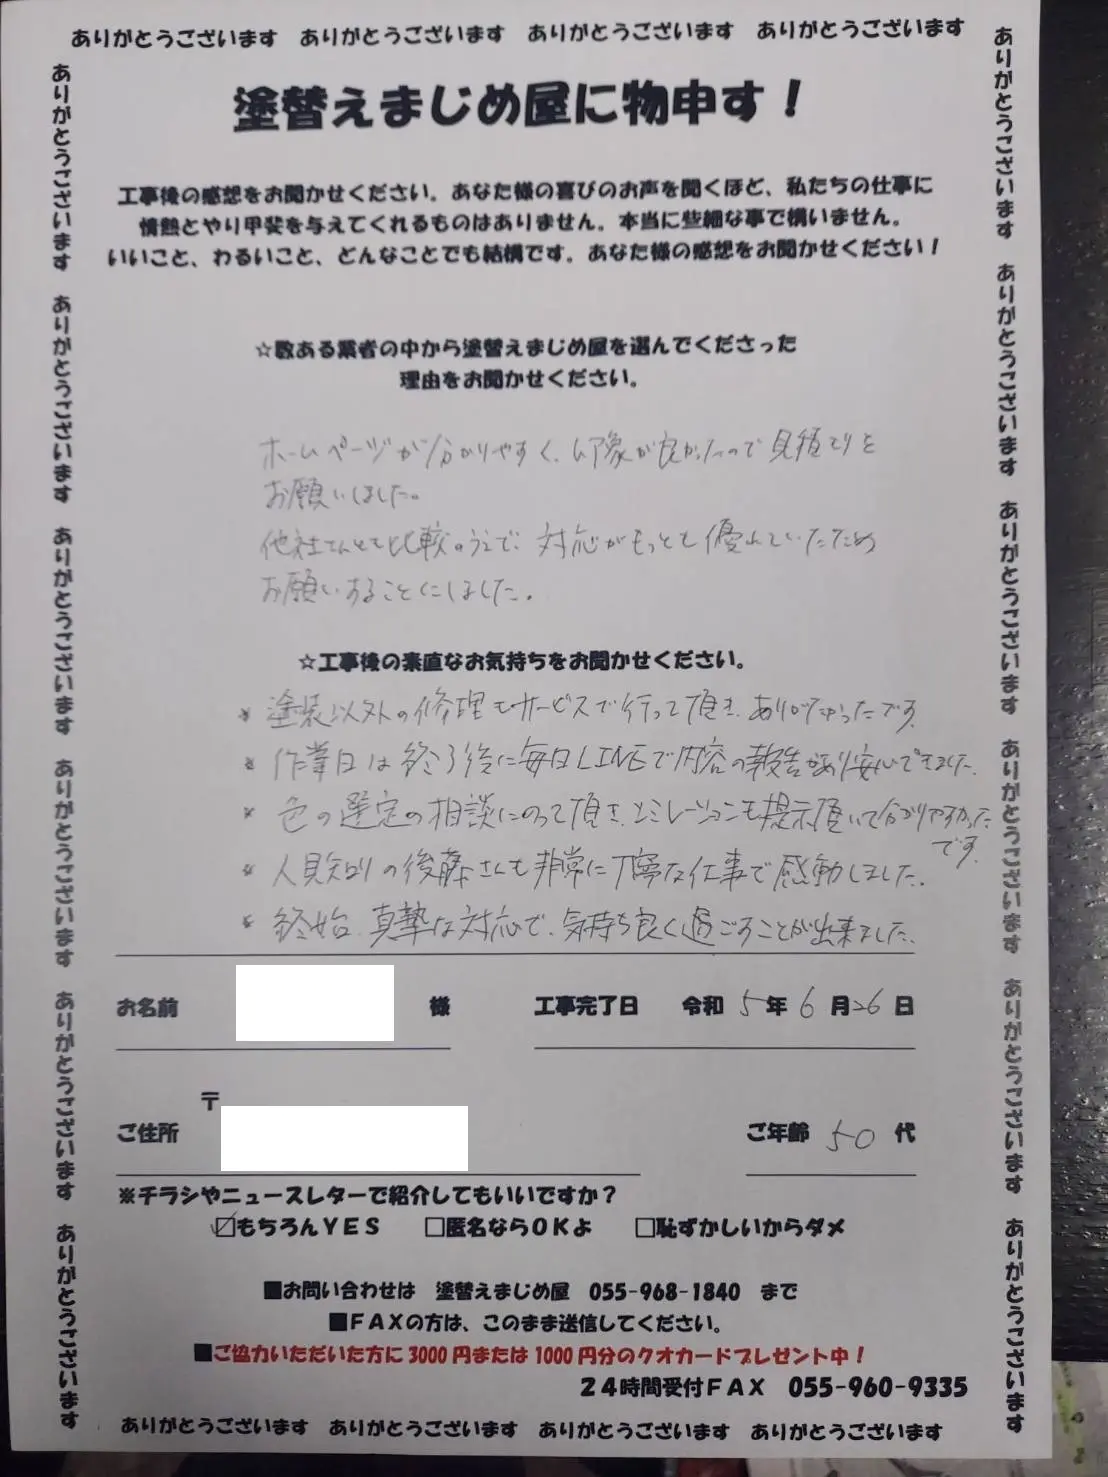 ありがとうございます ありがとうございます ありがとうございます ありがとうございます
ありがとうございます ありがとうございます ありがとうございます ありがとうございます ありがとうございます ありがとうございます
塗替えまじめ屋に物申す!
工事後の感想をお聞かせください。あなた様の喜びのお声を聞くほど、私たちの仕事に
情熱とやり甲斐を与えてくれるものはありません。本当に些細な事で構いません。
いいこと、わるいこと、どんなことでも結構です。あなた様の感想をお聞かせください!
☆数ある業者の中から塗替えまじめ屋を選んでくださった
理由をお聞かせください。
ホームページが分かりやすく、印象が良かったので見積もりを
お願いしました。
他社さんとも比較のうえで、対応がもっとも優れていたため
お願いすることにしました。
☆工事後の素直なお気持ちをお聞かせください。
* 塗装以外の修理もサービスで行って頂き、ありがたかったです。
* 作業日は終了後に毎日LINEで内容の報告があり安心できました。
* 色の選定の相談にのって頂き、シミレーションも提示頂いて分かりやすかった
です。
* 人見知りの後藤さんも非常に丁寧な仕事で感動しました。
* 終始、真摯な対応で、気持ち良く過ごすことが出来ました。
お名前 様 工事完了日 令和 5 年 6 月 26 日
〒
ご住所 ご年齢 50 代
※チラシやニュースレターで紹介してもいいですか?
☑もちろんYES □匿名ならOKよ □恥ずかしいからダメ
■お問い合わせは 塗替えまじめ屋 055-968-1840 まで
■FAXの方は、このまま送信してください。
■ご協力いただいた方に3000円または1000円分のクオカードプレゼント中!
24時間受付FAX 055-960-9335
ありがとうございます ありがとうございます ありがとうございます ありがとうございます
ありがとうございます ありがとうございます ありがとうございます ありがとうございます ありがとうございます ありがとうございます